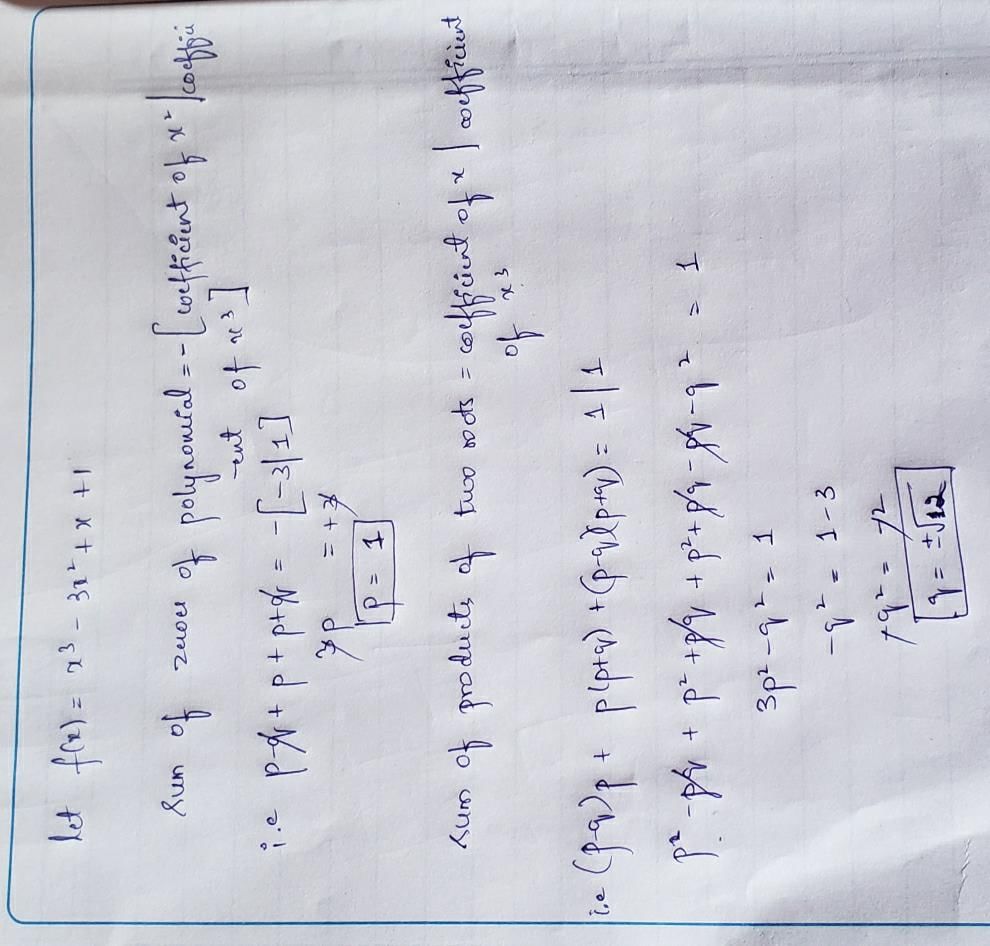 let f(x) = x³ - 3x² + x + 1
sum of zeroes of polynomial = - [coefficient of x² | coeffici
-ent of x³]
i.e p-q + p + p+q = - [-3|1]
3p = +3
p = 1
sum of products of two roots = coefficient of x | coefficient
of x³
i.e (p-q)p + p(p+q) + (p-q)(p+q) = 1|1
p² - pq + p² + pq + p² + pq - pq - q² = 1
3p² - q² = 1
-q² = 1-3
+q² = +2
q = ±√2